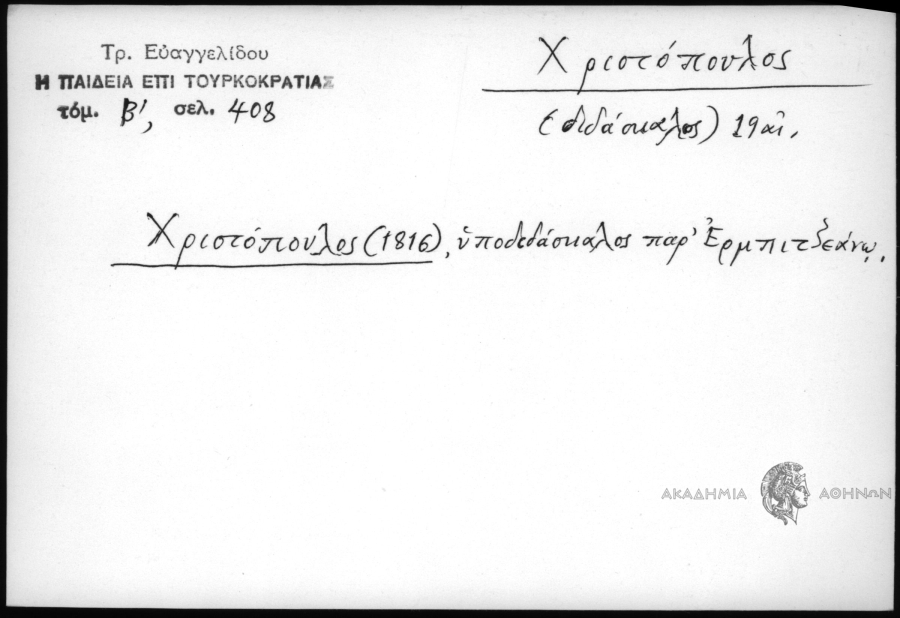 Τρ. Εὐαγγελίδου
Η ΠΑΙΔΕΙΑ ΕΠΙ ΤΟΥΡΚΟΚΡΑΤΙΑΣ
τόμ. Β', σελ. 408
Χριστόπουλος
(διδάσκαλος) 19 αἰ.
Χριστόπουλος (1816), ὑποδιδάσκαλος παρ' Ἐρμπιτσεάνῳ.
ΑΚΑΔΗΜΙΑ ΑΘΗΝΩΝ